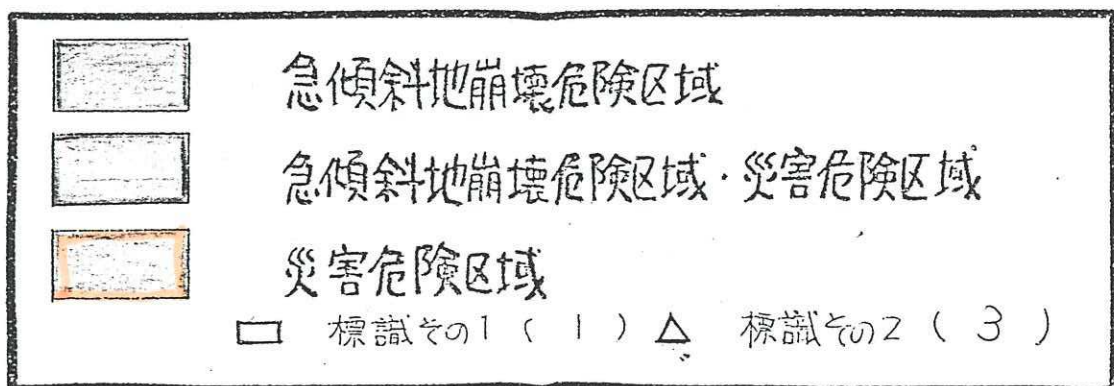 急傾斜地崩壊危険区域
急傾斜地崩壊危険区域・災害危険区域
災害危険区域
□ 標識その1 ( 1 ) △ 標識その2 ( 3 )